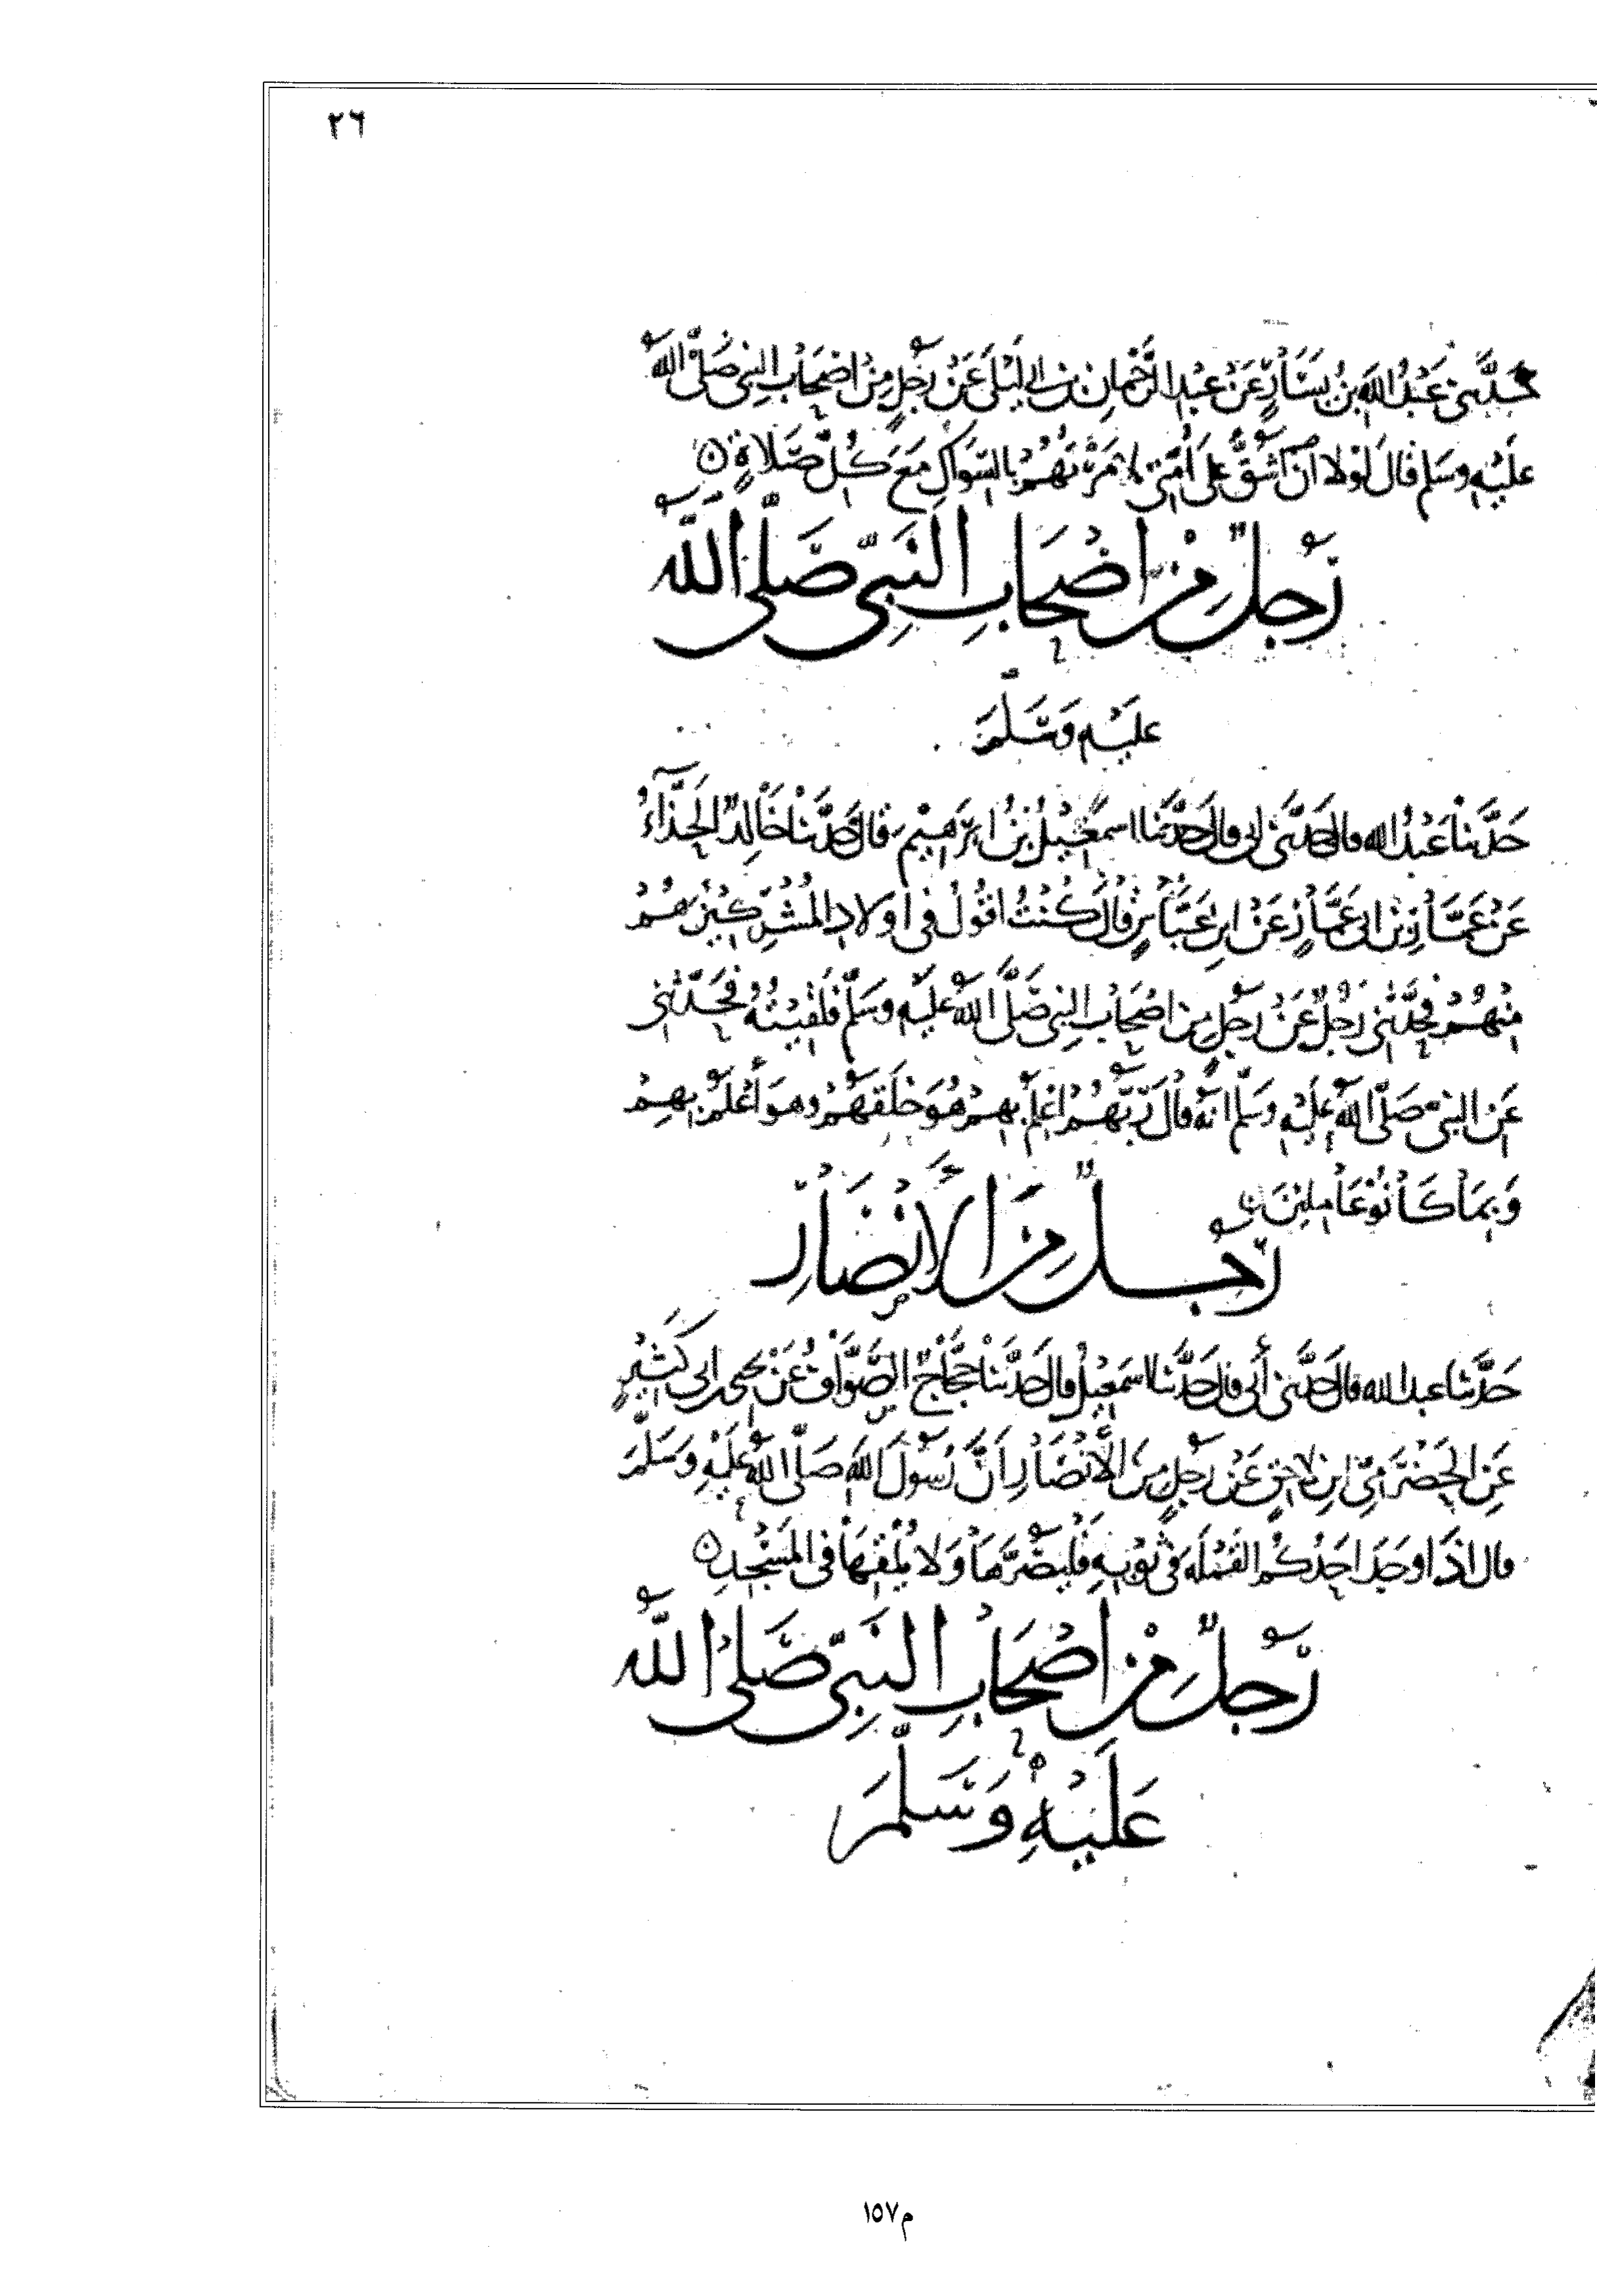 ٢٦
حَدَّثَنِي عَبْدُ اللهِ بنُ يَسَارٍ عَنْ عَبْدِ الرَّحْمَانِ بن ابي لَيْلَى عَنْ رَجُلٍ مِنْ اصْحَابِ النبي صَلَّى الله
عَلَيْهِ وسَلم قَالَ لَوْلَا أن أشُقَّ عَلى أُمَّتِي لامَرْتهُمْ بالسّوَاكِ مَعَ كُلِّ صَلَاةٍ
رَجُلٌ مِنْ اصْحَابِ النَبِيّ صَلَّى اللهُ
عَلَيْهِ وَسَلَّمَ
حَدَّثَنَا عَبْدُ الله قال حَدَّثَنِي ابي قال حَدَّثَنَا اسمَعِيلُ بْنُ ابْرَهِيْمَ قَالَ حَدَّثَنَا خَالِدٌ الحَذَّآءُ
عَنْ عَمَّارِ بْنِ ابي عَمَّارٍ عَنْ ابنِ عَبَّاسٍ قَالَ كُنْتُ اقُولُ في اولادِ المُشْرِكِينَ هُمْ
مِنْهُمْ فَحَدَّثَنِي رَجُلٌ عَنْ رَجُلٍ مِن اصْحَابِ النبي صَلَّى اللهُ عَلَيْهِ وَسَلَّم فَلَقِيْتُهُ فَحَدَّثَنِي
عَنِ النبيّ صَلَّى اللهُ عَلَيْهِ وسَلَّم انهُ قَالَ رَبُّهُمْ اعْلَمُ بِهِمْ هُوَ خَلَقَهُمْ وهو أَعْلَمُ بِهِمْ
وَبِمَا كَانُوْ عَامِلِينَ
رَجُلٌ مِنَ الأَنْصَارِ
حَدَّثنا عبد الله قال حَدَّثَنِي أَبي قال حَدَّثَنَا اسمَعِيْلُ قال حَدَّثَنَا حَجَّاجٌ الصَّوَّافُ عَنْ يَحيى ابي كَثِيْرٍ
عَنِ الحَضْرَمِيّ ابنِ لاحِقٍ عَنْ رَجُلٍ مِنَ الأَنْصَارِ اَنَّ رَسُوْلَ اللهِ صَلَّى اللهُ عَلَيْهِ وَسَلَّمَ
قال اذَا وَجَدَ احَدُكُمُ القَمْلَه في ثَوْبِهِ فَلْيَصُرَّهَا وَلا يُلْقِهَا في المَسْجِدِ
رَجُلٌ مِنْ اصْحَابِ النَبِيّ صَلَّى اللهُ
عَلَيْهِ وَسَلَّمَ
م١٥٧